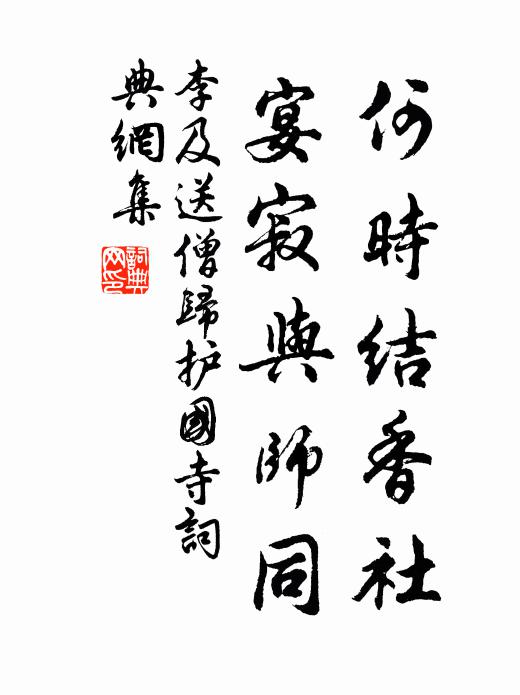 何時結香社
宴寂與師同
李及送僧歸护國寺詞
典網集
詞典
网印